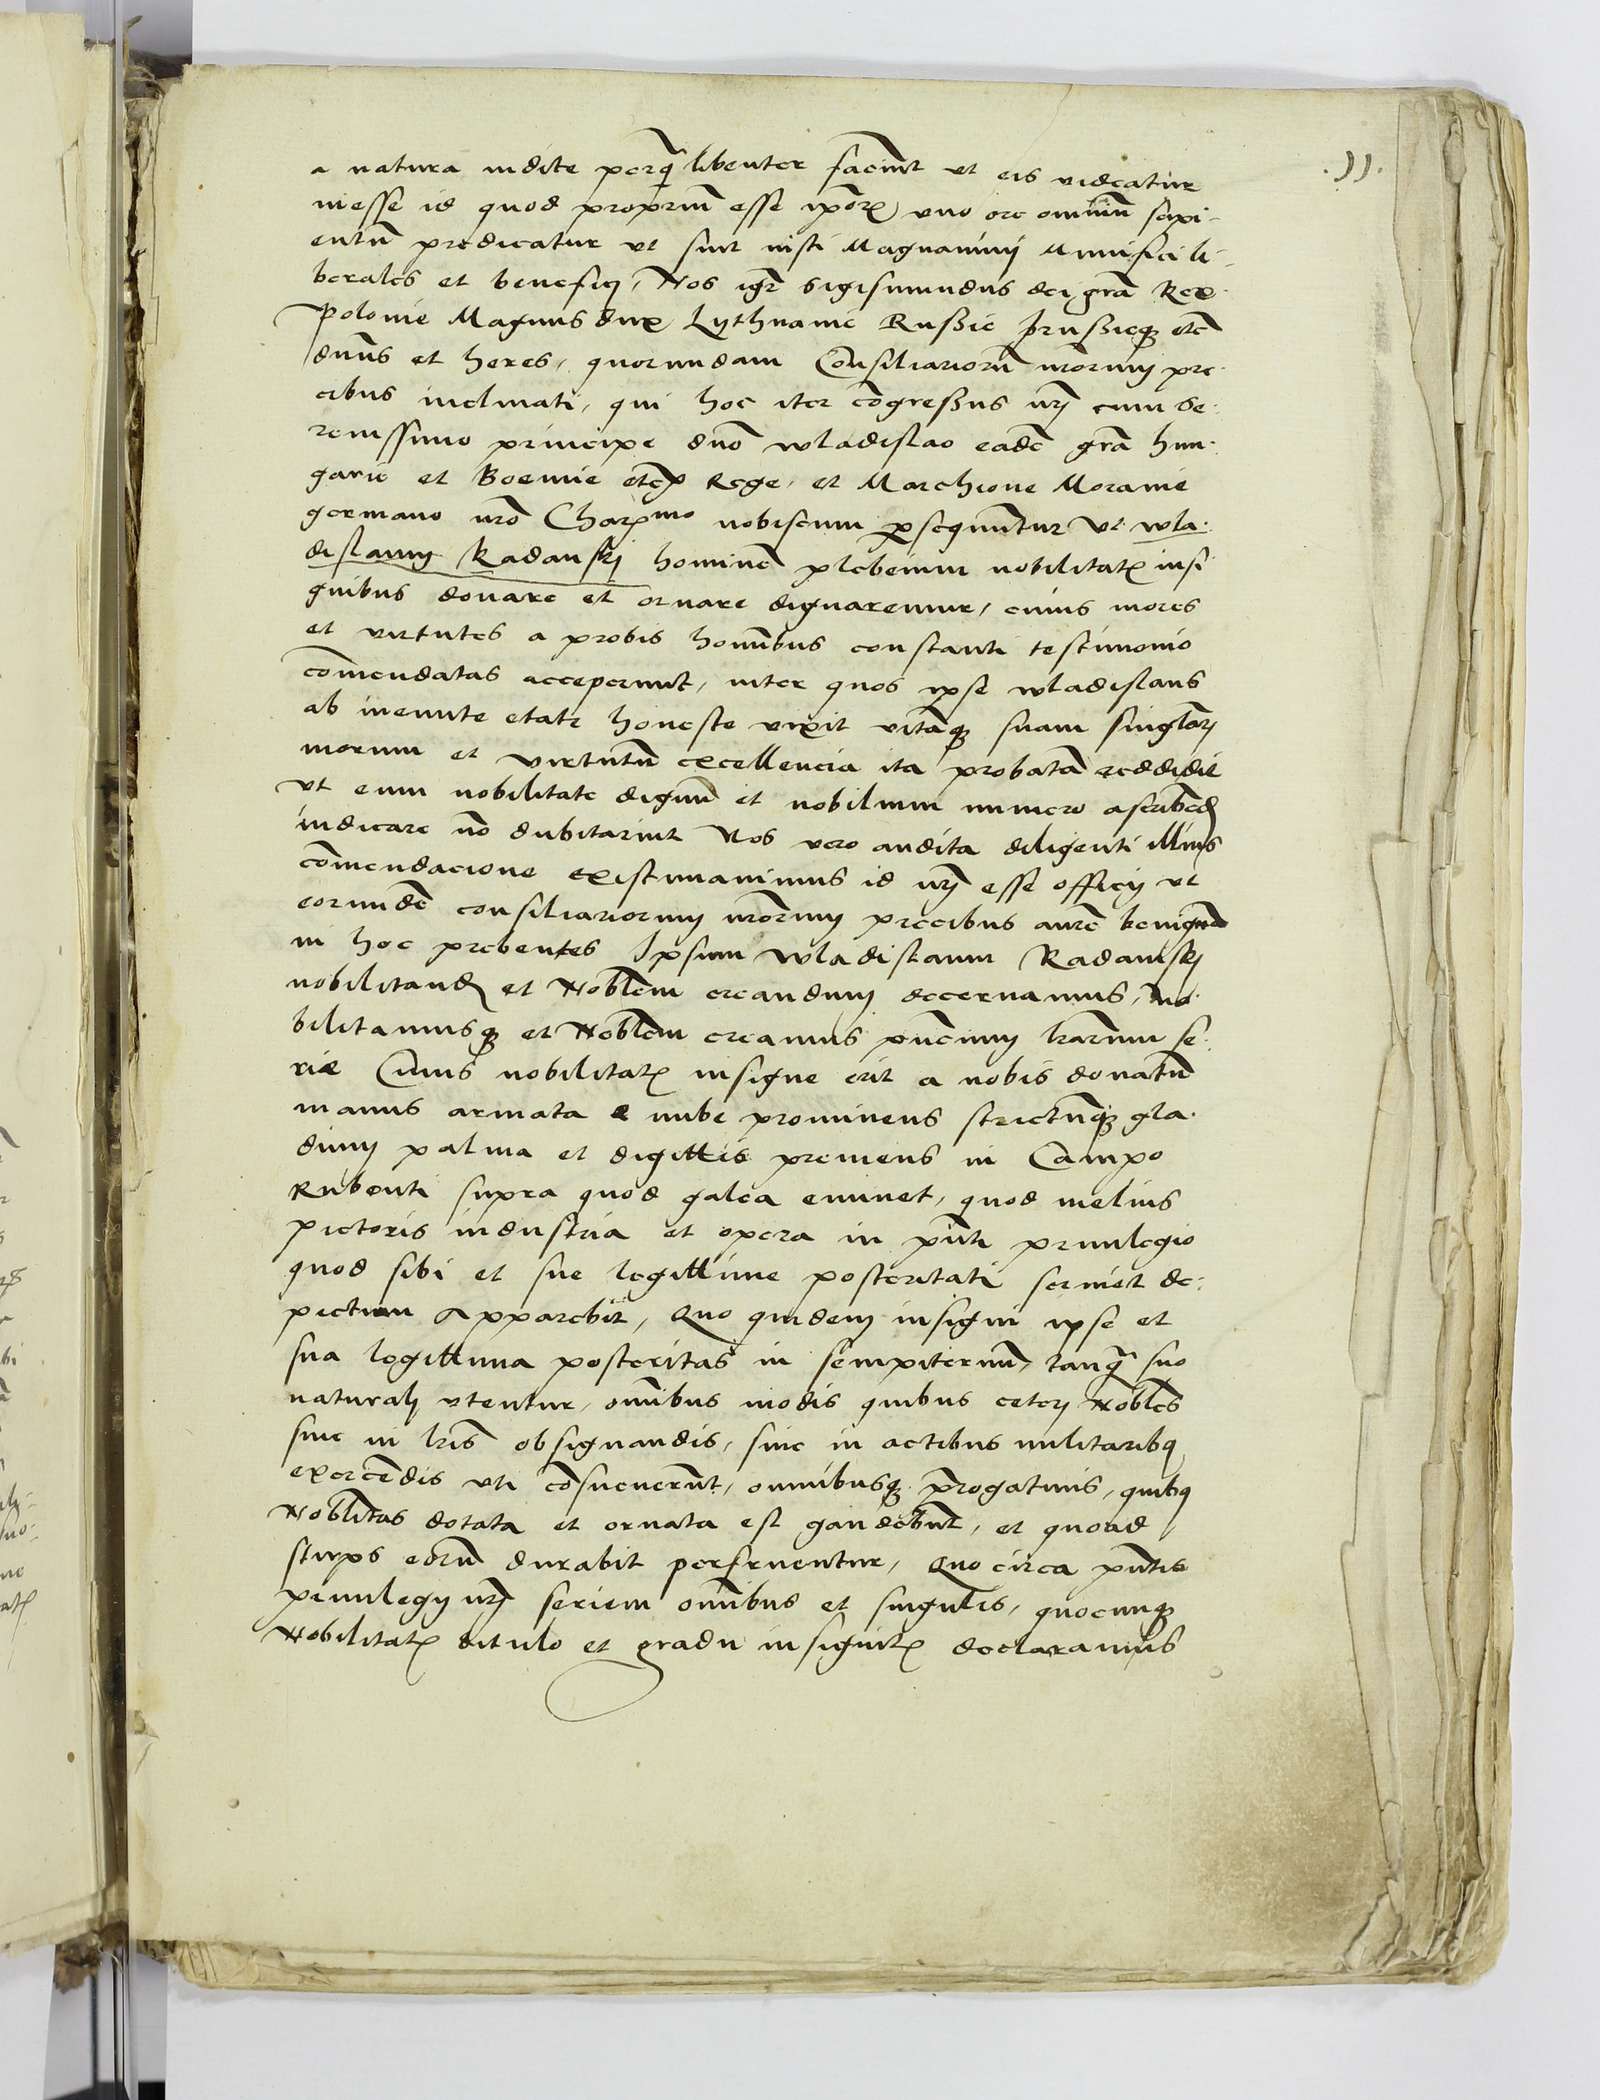 .11.
a natura indite perq̃ libenter faciunt ut eis videatur
inesse id quod propriũ esse ip̃orũ uno ore omniũ sapi-
entũ predicatur ut sint iusti Magnanimi Munifici li-
berales et benefici, Nos igr̃ Sigismundus dei gr̃a Rex
Polonie Magnus dux Lythuanie Russie Prussieq; etc̃
dñus et heres, quorundam Consiliariorũ nr̃orum pre-
cibus inclinati, qui hoc iter cõgressus nr̃i cum Se-
renissimo principe dño Wladislao eadẽ gr̃a Hun-
garie et Boemie etc̃ Rege, et Marchione Moravie
germano nr̃o Char^mo nobiscum ꝑsequuntur ut Wla-
dislaum Radanski hominẽ plebeium nobilitatis insi
gnibus donare et ornare dignaremur, cuius mores
et virtutes a probis hominibus constanti testimonio
com̃endatas acceperunt, inter quos ipse Wladislaus
ab ineunte etate honeste vixit vitãq; suam singlari
morum et virtutũ excellencia ita probatã reddidit
ut eum nobilitate dignũ et nobilium numero ascribẽd
iudicare nõ dubitarint Nos vero audita diligenti illius
com̃endacione existimavimus id nr̃i esse officij ut
eorundẽ consiliariorum nr̃orum precibus aurẽ benignã
in hoc prebentes Ipsum Wladislaum Radanski
nobilitand et Nobl̃em creandum decernamus, no-
bilitamusq; et Nobl̃em creamus pñcium lr̃arum se-
rie Cuius nobilitatis insigne erit a nobis donatũ
manus armata e nube prominens strictũq; gla-
dium palma et digittis premens in Campo
Rubenti supra quod galea eminet, quod melius
pictoris industria et opera in pñti privilegio
quod sibi et sue legittime posteritati serviet de-
pictum Apparebit, Quo quidem insigni ipse et
sua legittima posteritas in sempiternũ, tanq̃ suo
naturali utentur, omñibus modis quibus ceteri Nobl̃es
sive in lr̃is obsignandis, sive in actibus militaribq
exercẽdis uti cõsueverũt, omnibusq; p̃rogativis, quibq
Nobl̃itas dotata et ornata est gaudebũt, et quoad
stirps eorũ durabit perfruentur, Quo circa pñtis
privilegij nr̃i seriem omñibus et singulis, quocunq;
Nobilitatis titulo et gradu insignitis declaramus